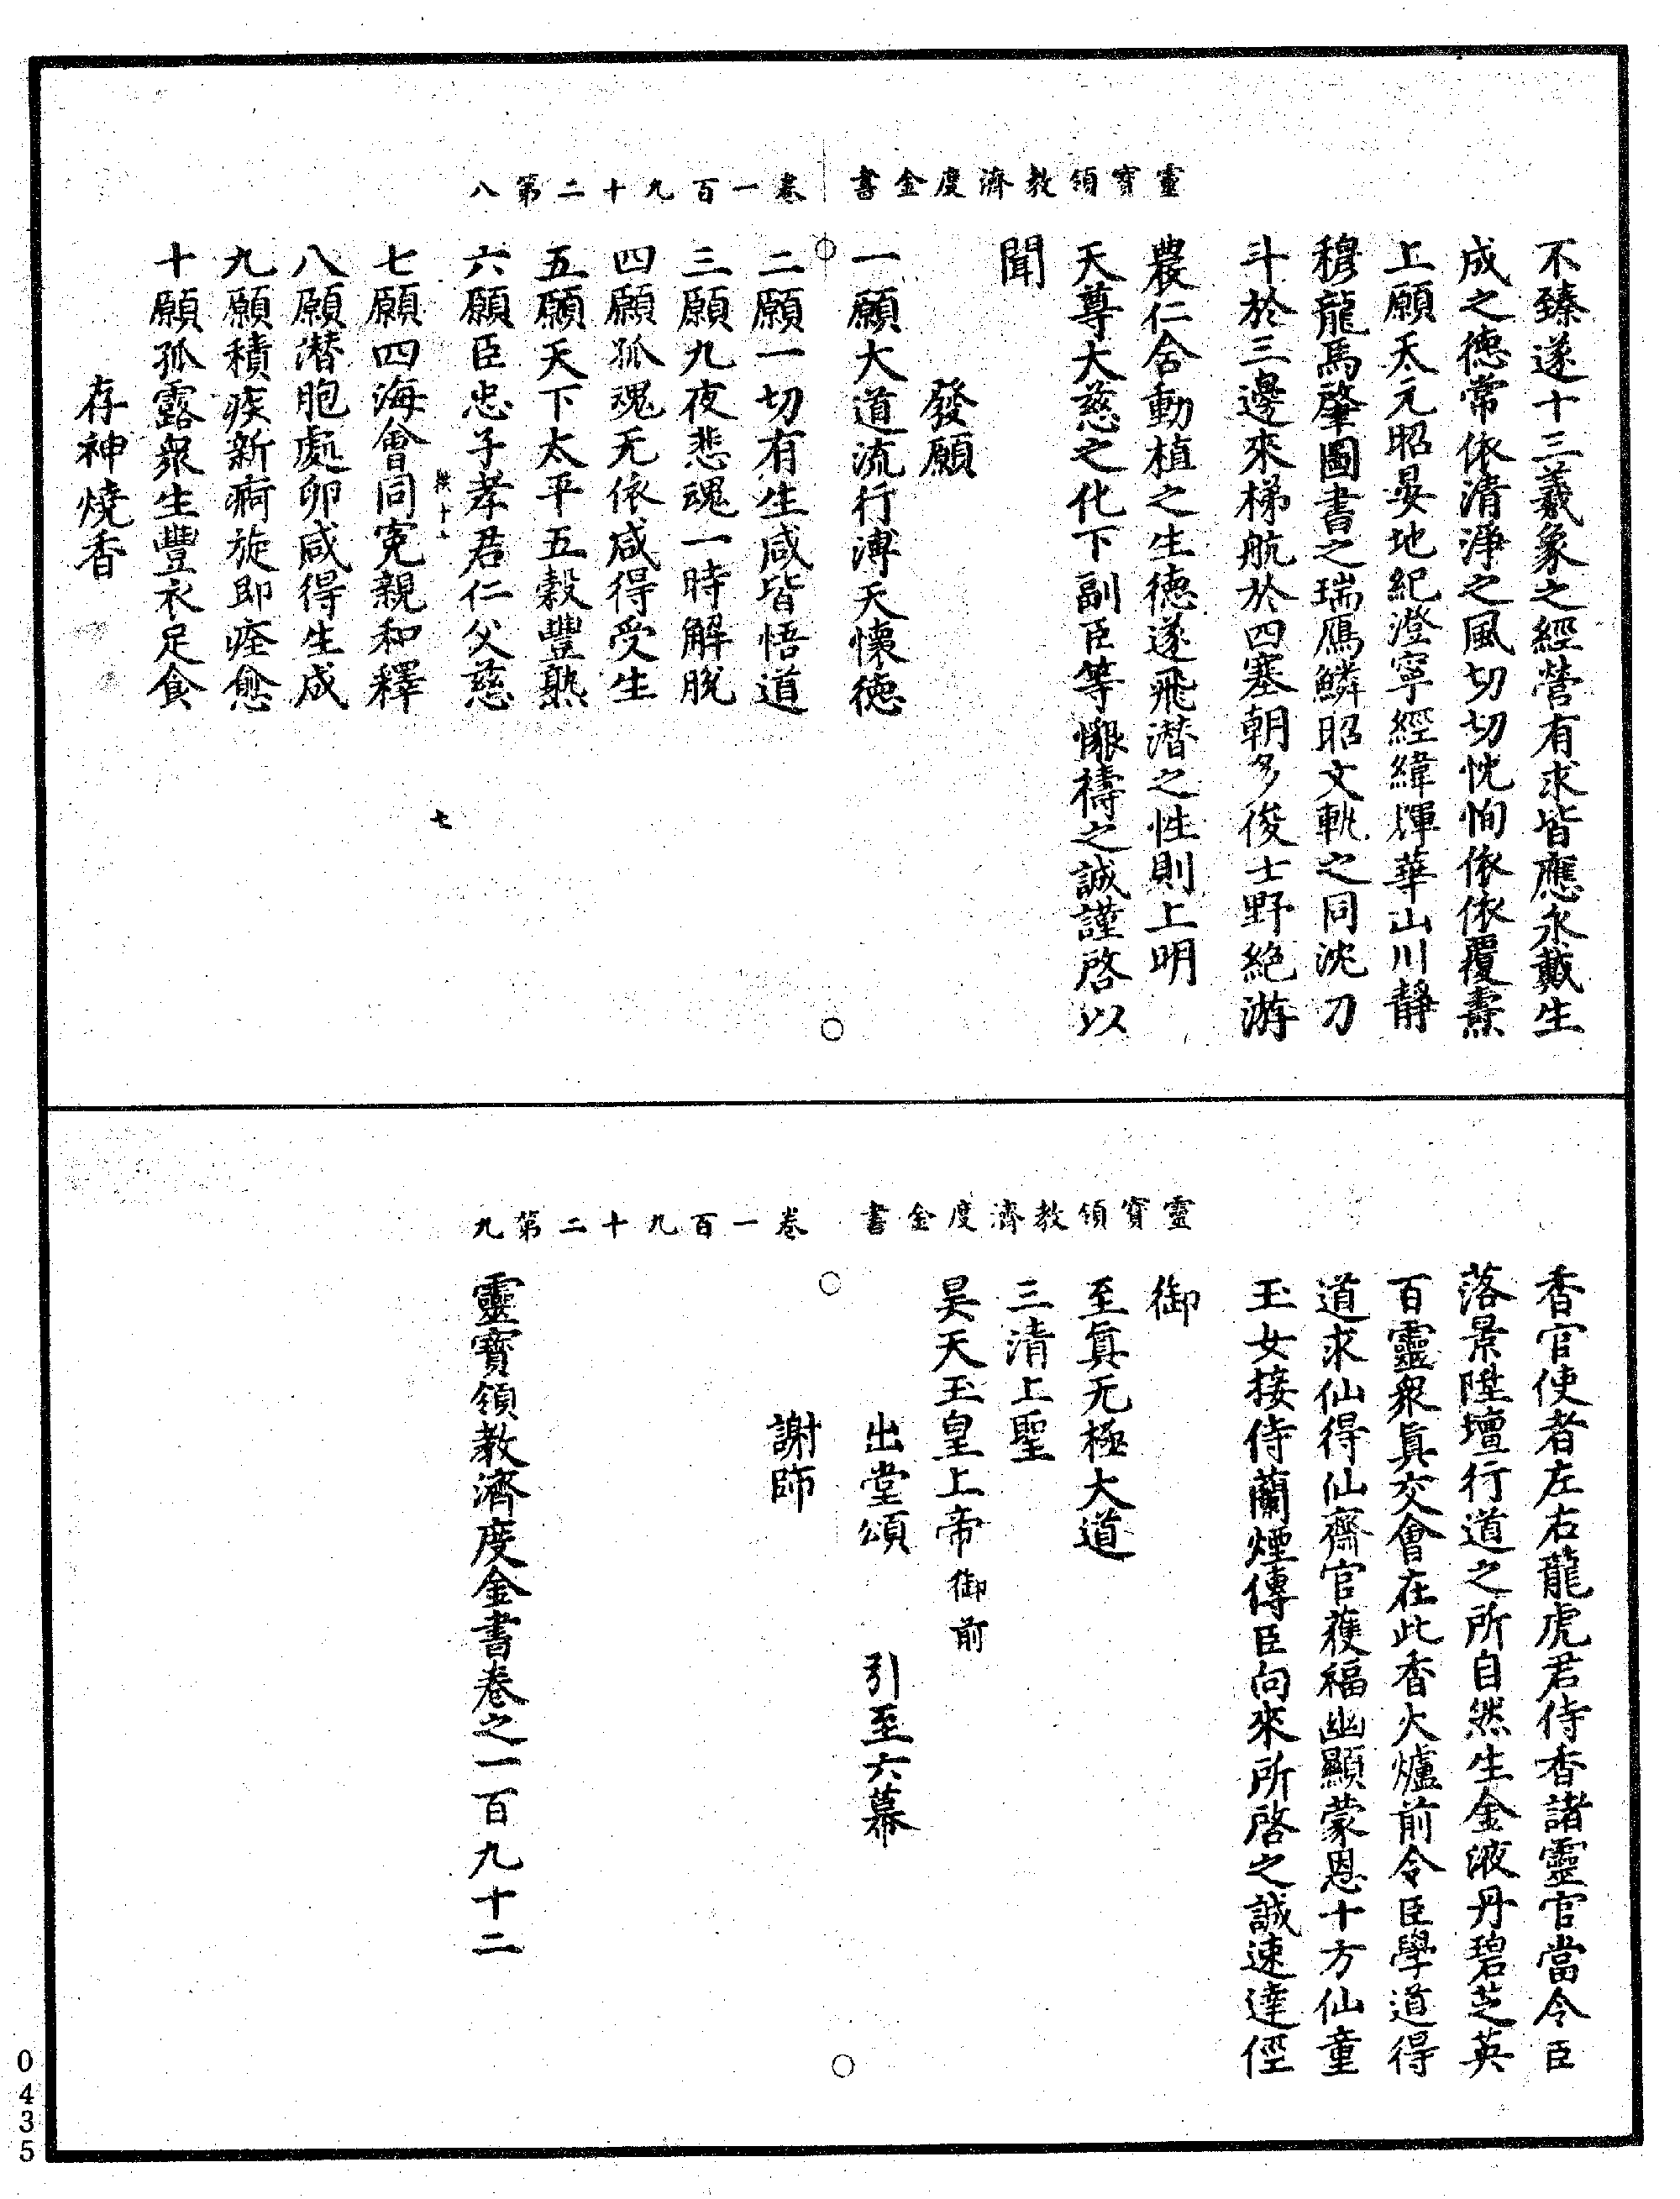 靈寶領教濟度金書　卷一百九十二第八
不臻遂十三義象之經營有求皆應永戴生
成之德常依清淨之風切切忱恂依依覆燾
上願天元昭晏地紀澄寧經緯輝華山川靜
穆龍馬肇圖書之瑞鴈鱗昭文軌之同沈刀
斗於三邊來梯航於四塞朝多俊士野絶游
農仁含動植之生德遂飛潛之性則上明
天尊大慈之化下副臣等懇禱之誠謹啓以
聞
發願
一願大道流行溥天懷德
二願一切有生咸皆悟道
三願九夜悲魂一時解脫
四願孤魂无依咸得受生
五願天下太平五穀豐熟
六願臣忠子孝君仁父慈
七
七願四海會同寃親和釋
八願潛胞處卵咸得生成
九願積疾新痾旋即痊愈
十願孤露衆生豐衣足食
存神燒香
靈寶領教濟度金書　卷一百九十二第九
香官使者左右龍虎君侍香諸靈官當令臣
落景陞壇行道之所自然生金液丹碧芝英
百靈衆眞交會在此香火爐前令臣學道得
道求仙得仙齋官獲福幽顯蒙恩十方仙童
玉女接侍蘭煙傳臣向來所啓之誠速達徑
御
至眞无極大道
三清上聖
昊天玉皇上帝御前
出堂頌　引至六幕
謝師
靈寶領教濟度金書卷之一百九十二
0435